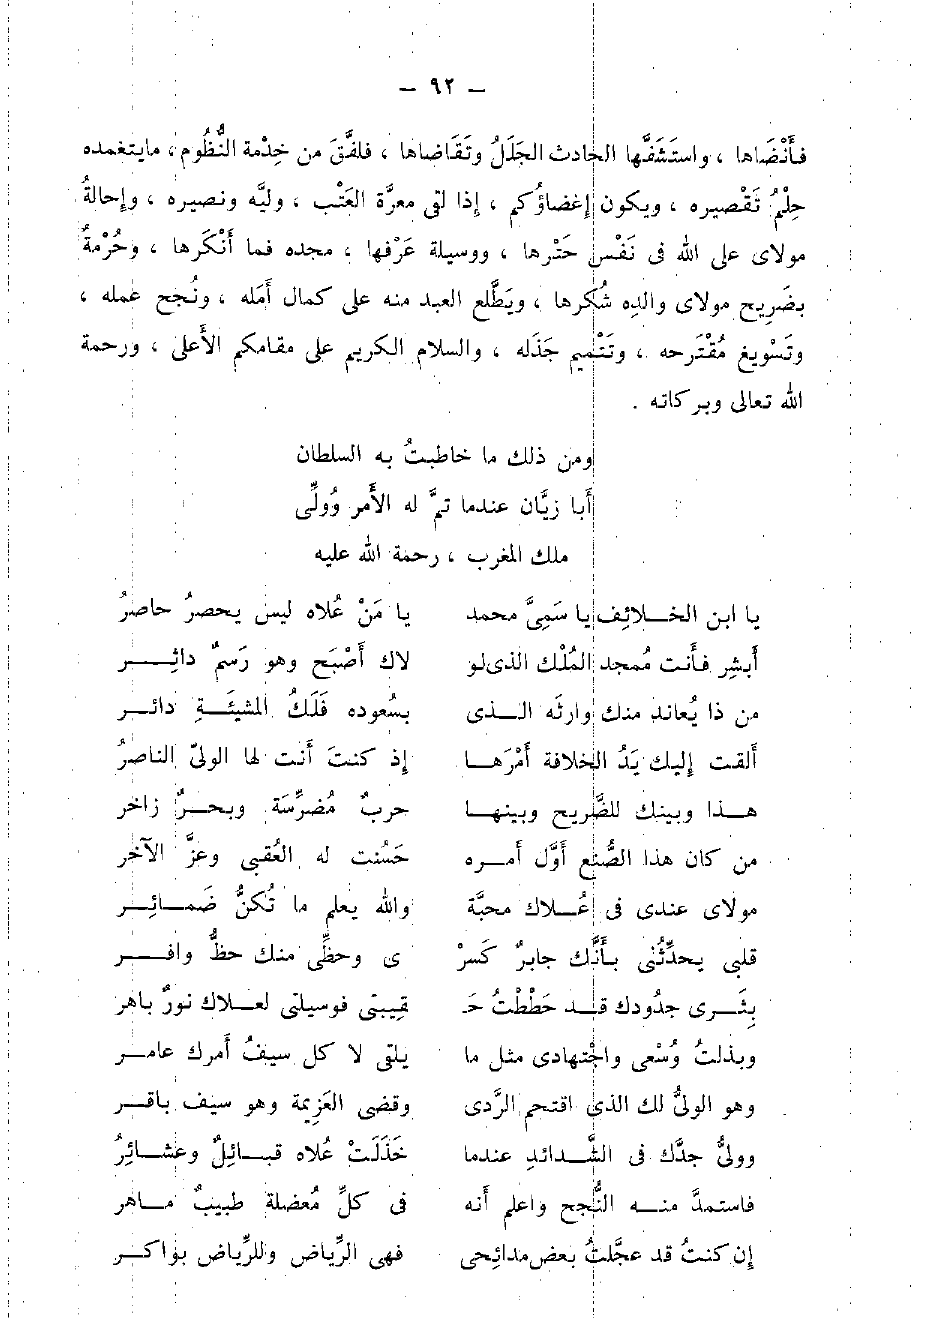 — ٩٢ —
فأَنْضَاها ، واستَشَفَّها الحادث الجَلَلُ وتَقَاضاها ، فلفَّقَ من خِدْمة النُّظُوم ، مايتغمده
حِلْمُ تَقْصيره ، ويكون إغضاؤُكم ، إذا لقى معرَّة العَتْب ، وليَّه ونصيره ، وإحالةُ
مولاى على الله فى نَفْسٍ جَبَرها ، ووسيلة عَرَفها ، مجده فما أَنْكرها ، وحُرْمةُ
بضَريح مولاى والده شُكرها ، ويَطَّلع العبد منه على كمال أَمَله ، ونُجح عمله ،
وتَسْويغ مُقْتَرحه ، وتَتْميم جَذَله ، والسلام الكريم على مقامكم الأَعلى ، ورحمة
الله تعالى وبركاته .
ومن ذلك ما خاطبتُ به السلطان
أَبا زيَّان عندما تمَّ له الأَمر وُولِّى
ملك المغرب ، رحمة الله عليه
يا ابن الخــلائِف يا سَمِىَّ محمد يا مَنْ عُلاه ليس يحصرُ حاصرُ
أَبشِر فأَنت مُمجد المُلْك الذى لو لاك أَصْبَح وهو رَسمٌ داثِــر
من ذا يُعاند منك وارثَه الــذى بسُعوده فَلَكُ المشيئَــةِ دائــر
أَلقت إليك يَدُ الخلافة أَمْرَهــا إذ كنتَ أَنت لها الولىّ الناصرُ
هــذا وبينك للضَّريح وبينهــا حربٌ مُضرِّسَة وبحــرٌ زاخر
من كان هذا الصُّنع أَوَّل أمــره حَسُنت له العُقبى وعزَّ الآخر
مولاى عندى فى عُــلاك محبَّة والله يعلم ما تُكنُّ ضمــائِــر
قلبى يحدِّثُنى بأَنَّك جابرٌ كَسرْ ى وحظِّى منك حظٌّ وافــر
بثَــرى جدُودك قــد حَطَطْتُ حَـ قِيبتى فوسيلتى لعــلاك نورٌ باهر
وبذلتُ وُسْعى واجْتهادى مثل ما يلقى لا كل سيفُ أَمرك عامــر
وهو الولىُّ لك الذى اقتحم الرَّدى وقضى العَزِيمة وهو سيف باقــر
وولىُّ جدِّك فى الشَّــدائدِ عندما خَذَلَتْ عُلاه قبــائِلٌ وعشــائِرُ
فاستمدَّ منــه النُّجح واعلم أَنه فى كلِّ مُعضلة طبيبٌ مــاهر
إن كنتُ قد عجَّلتُ بعض مدائحى فهى الرِّياض وللرِّياض بواكــر